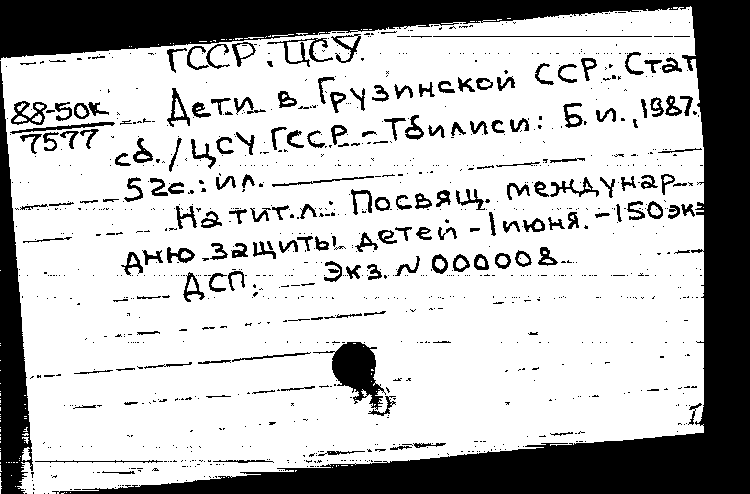 ГССР. ЦСУ.
88-50к
7577
Дети в Грузинской ССР: Стат
сб. / ЦСУ ГССР - Тбилиси: Б. и., 1987.
52с.: ил.
На тит. л.: Посвящ. междунар
дню защиты детей - 1 июня. - 150 экз
ДСП. Экз. N 000008